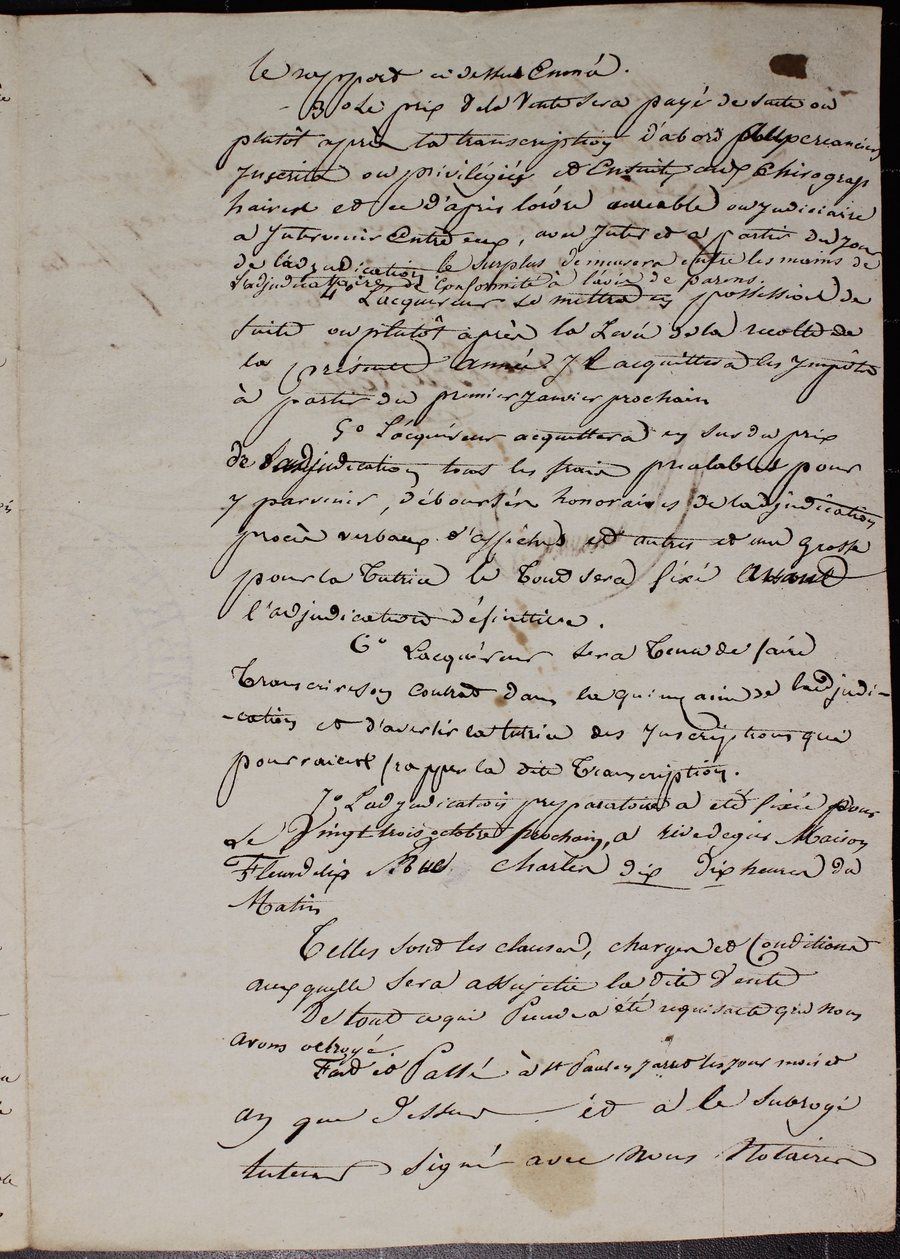 le rapport ci dessus Enoncé.
3o Le prix de la Vente sera payé de suite ou
plutôt après la transcription d'abord aux creanciers
Inscrits ou privilégiés et Ensuite aux Chirograp
haires et ce d'après l'ordre amiable ou judiciaire
a Intervenir Entre eux, avec Interet a partir du jour
de l'adjudication le surplus demeurera entre les mains de
l'adjudicataire de Conformité à l'avis de parens.
4o Lacquereur se mettra en possession de
suite ou plutôt après la Levée de la recolte de
la présente année Il acquittera les Impôts
à partir du premier Janvier prochain
5o L'acquéreur acquittera en sus du prix
de l'adjudication tous les frais prealables pour
y parvenir, déboursés honoraires de ladjudication
procès verbaux d'affiches et autres et une grosse
pour la Tutrice le Tout sera fixé avant
l'adjudication définitive.
6o Lacquéreur sera Tenu de faire
Transcrire son Contrat dans la quinzaine de l'adjudi-
-cation et d'avertir la tutrice des Inscriptions qui
pourraient frapper la dite Transcription.
7o Ladjudication preparatoire a été fixée pour
Le Vingt trois octobre prochain, a rivedegier Maison
Fleurdelix Rue Charles dix dix heures du
Matin
Telles sont les clauses, charges et Conditions
aux quelles sera assujetie la dite Vente
De tout ce qui Precede a été requis acte que nous
avons octroyé
Fait et Passé à St Paul en Jarret les jour mois et
an que dessus et a le Subrogé
tuteur Signé avec nous Notaires